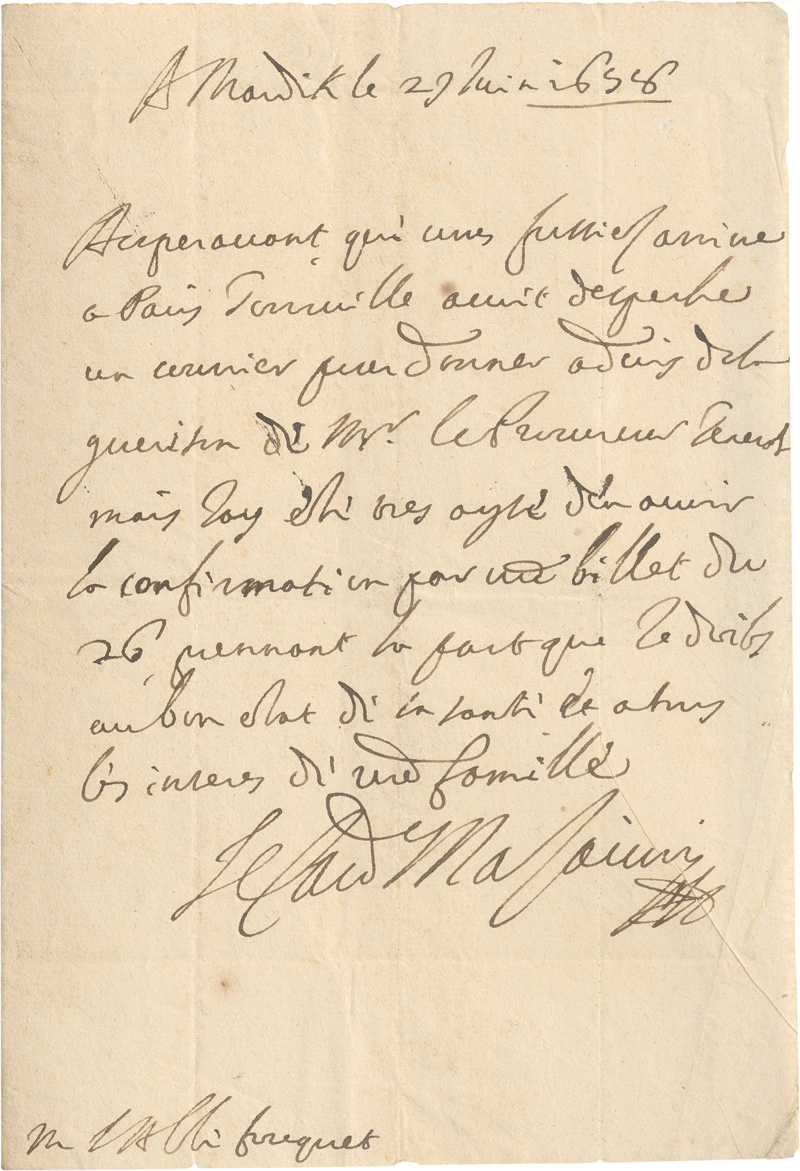 A Mardik le 29 Juin 1658
Auperavant que vous fussies arrive
a Paris Tourville avoit despeche
un courrier pour donner advis de la
guerison de Mr. le Procureur General
mais j'ay esté tres aysé d'en avoir
la confirmation par vre billet du
26 prennant la part que je doibs
au bon estat de sa santé et a tous
les interes de vre famille
Le Card Mazarini
m l'Abbé fouquet